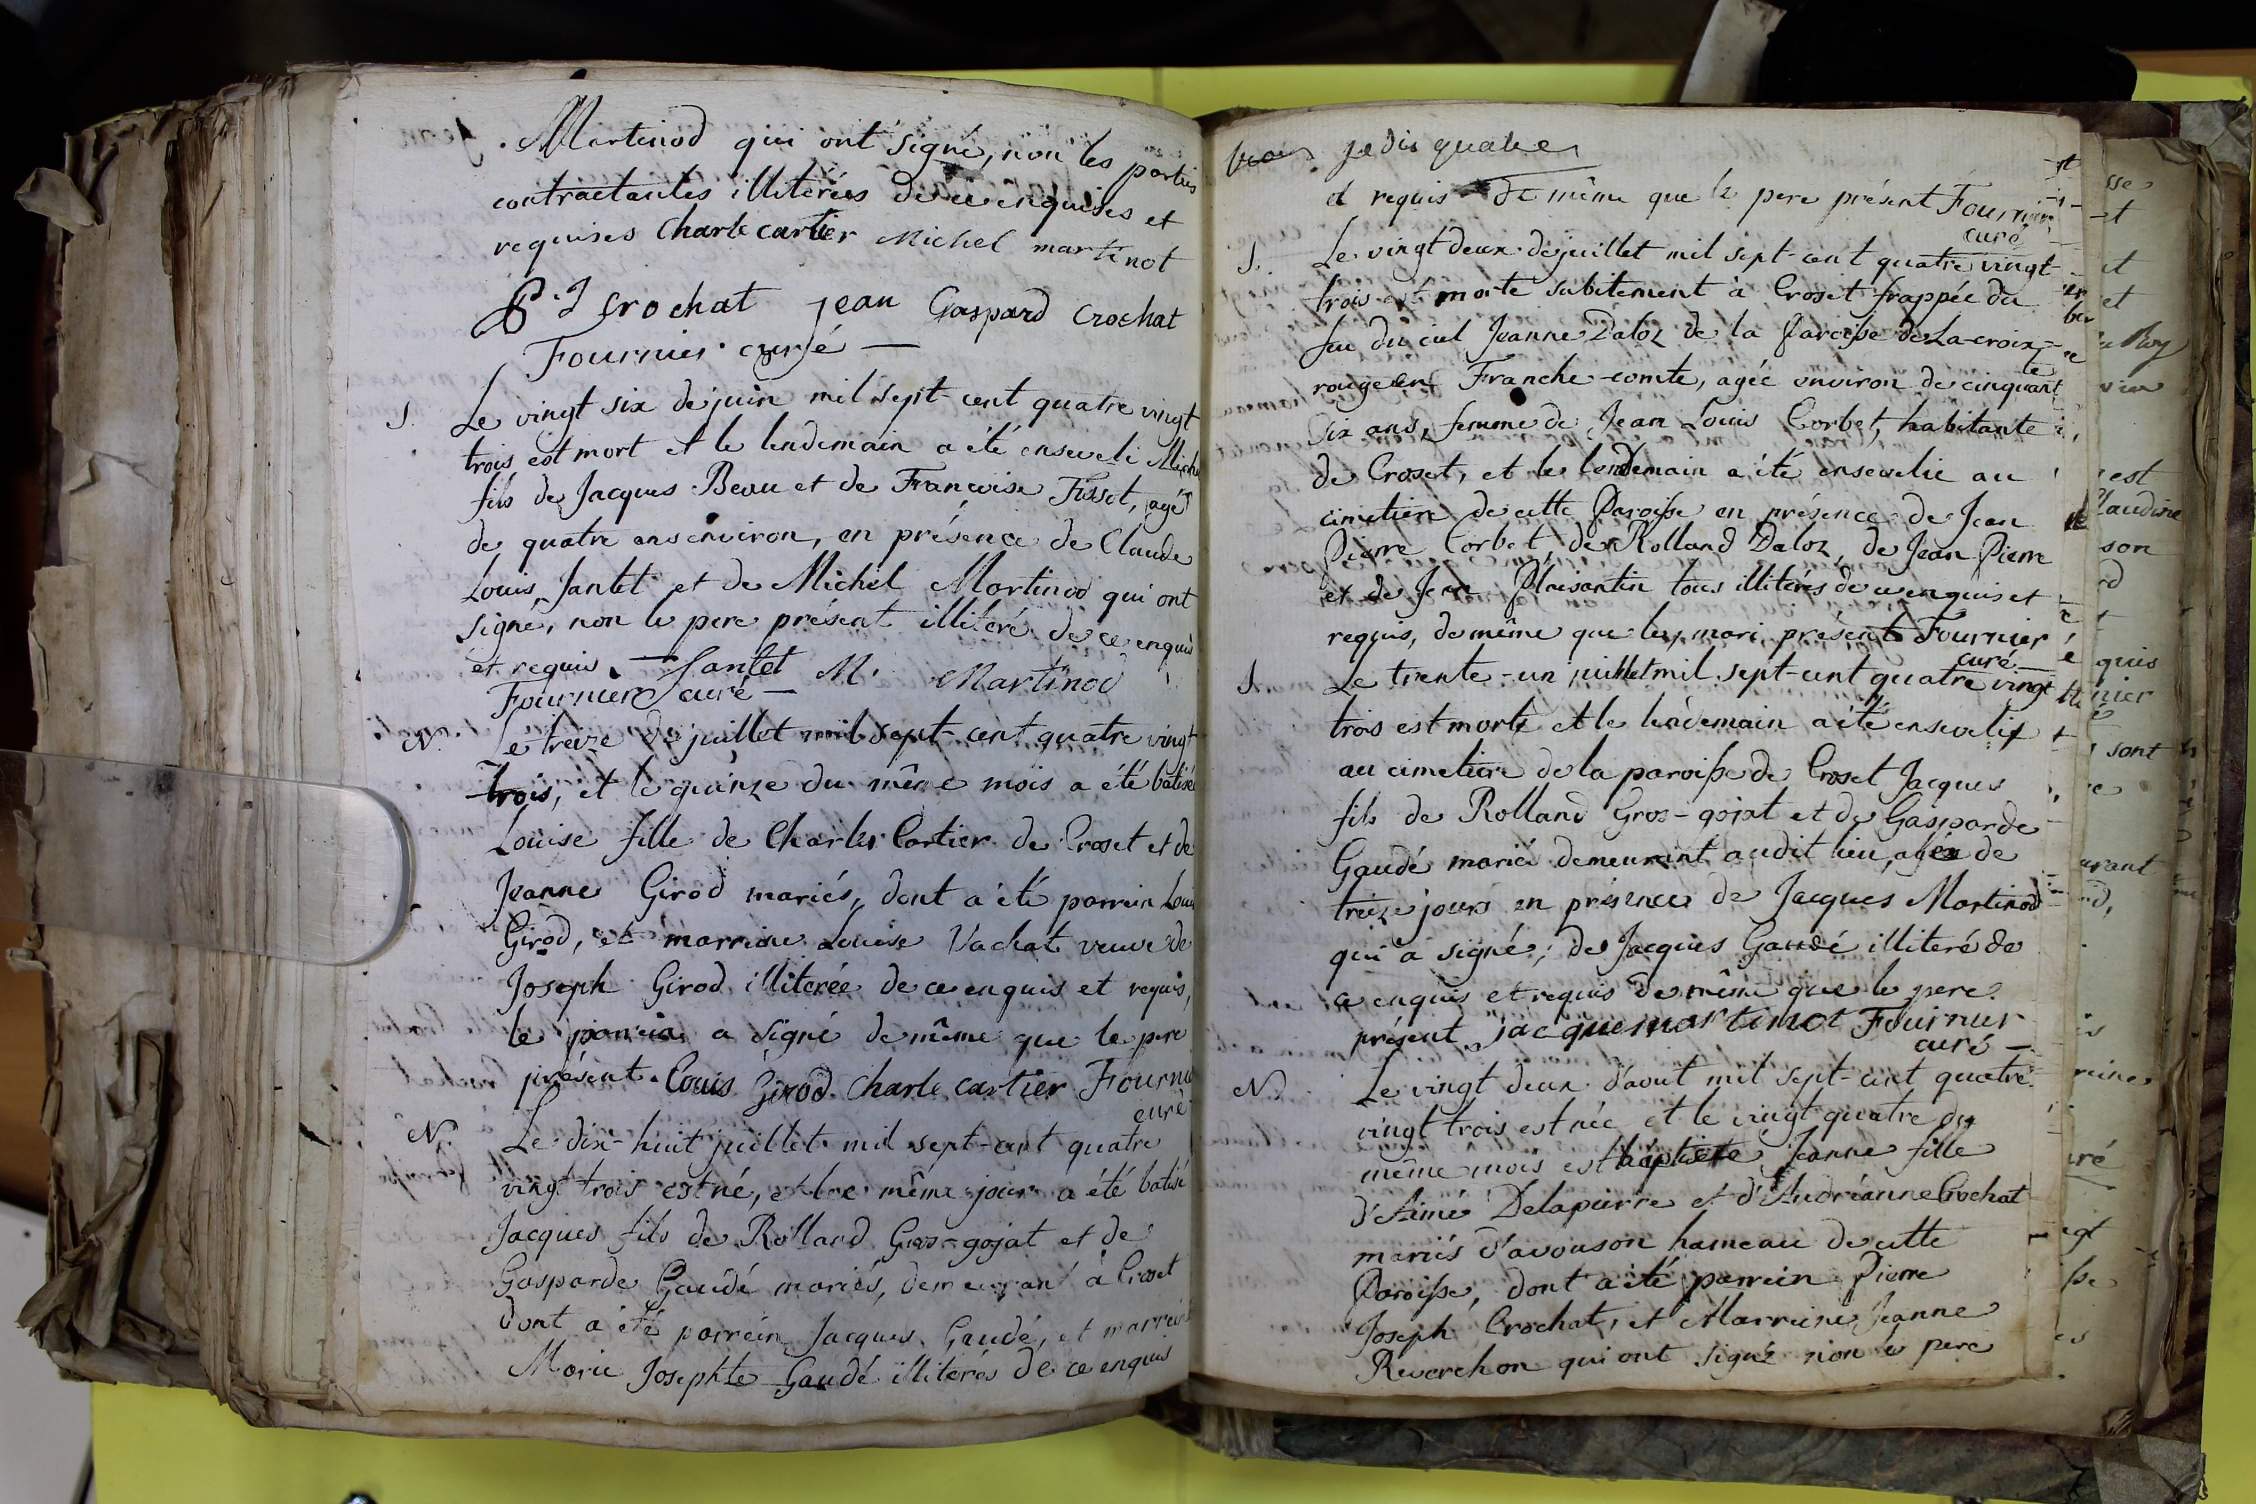 Martinod qui ont signé, non les parties
contractantes illiterées de ce enquises et
requises Charle cartier Michel martinot
P. J crochat jean Gaspard crochat
Fournier curé —
S. Le vingt six de juin mil sept-cent quatre vingt
trois est mort et le lendemain a été enseveli Miche
fils de Jacques Beau et de Francoise Fisset, agé
de quatre ans environ, en présence de Claude
Louis Jantet et de Michel Martinod qui ont
signé, non le pere présent illiteré de ce enquis
et requis. Jantet M. Martinod
Fournier curé —
N. Le treize de juillet mil sept-cent quatre vingt
trois, et le quinze du même mois a été batisée
Louise fille de Charles Cartier de Croset et de
Jeanne Girod mariés, dont a été parrein Louis
Girod, et marreine Louise Vachat veuve de
Joseph Girod illiterée de ce enquis et requis,
le parrein a signé de même que le pere
présent. Louis Girod. Charle cartier Fournier
curé
N. Le dix-huit juillet mil sept-cent quatre
vingt trois est né, et le même jour a été batisé
Jacques fils de Rolland Gros-gojat et de
Gasparde Gaudé mariés, demeurant à Croset
dont a été parrein Jacques Gaudé, et marreine
Marie Josephte Gaudé illiterés de ce enquis
je dis quatre
et requis de même que le pere présent Fournier
curé
S. Le vingt deux de juillet mil sept-cent quatre vingt
trois est morte subitement à Croset frappée du
feu du ciel Jeanne Daloz de la Paroisse de La-croix-
rouge en Franche-comte, agée environ de cinquante
six ans, femme de Jean Louis Corbet, habitante
de Croset, et le lendemain a été ensevelie au
cimetiere de cette Paroisse en présence de Jean
Pierre Corbet, de Rolland Daloz, de Jean Pierre
et de Jean Plaisantin tous illiterés de ce enquis et
requis, de même que le mari présent Fournier
curé
S. Le trente-un juillet mil sept-cent quatre vingt
trois est mort et le lendemain a été enseveli
au cimetiere de la paroisse de Croset Jacques
fils de Rolland Gros-gojat et de Gasparde
Gaudé mariés demeurant audit lieu, agé de
treize jours en présence de Jacques Martinod
qui a signé, de Jacques Gaudé illiteré de
ce enquis et requis de même que le pere
présent. jacque martinot Fournier
curé —
N. Le vingt deux d'aout mil sept-cent quatre
vingt trois est née et le vingt quatre du
même mois est baptisée Jeanne fille
d'Aimé Delapierre et d'Andréanne Crochat
mariés d'avouson hameau de cette
Paroisse, dont a été parrein Pierre
Joseph Crochat, et Marreine Jeanne
Reverchon qui ont signé non le pere